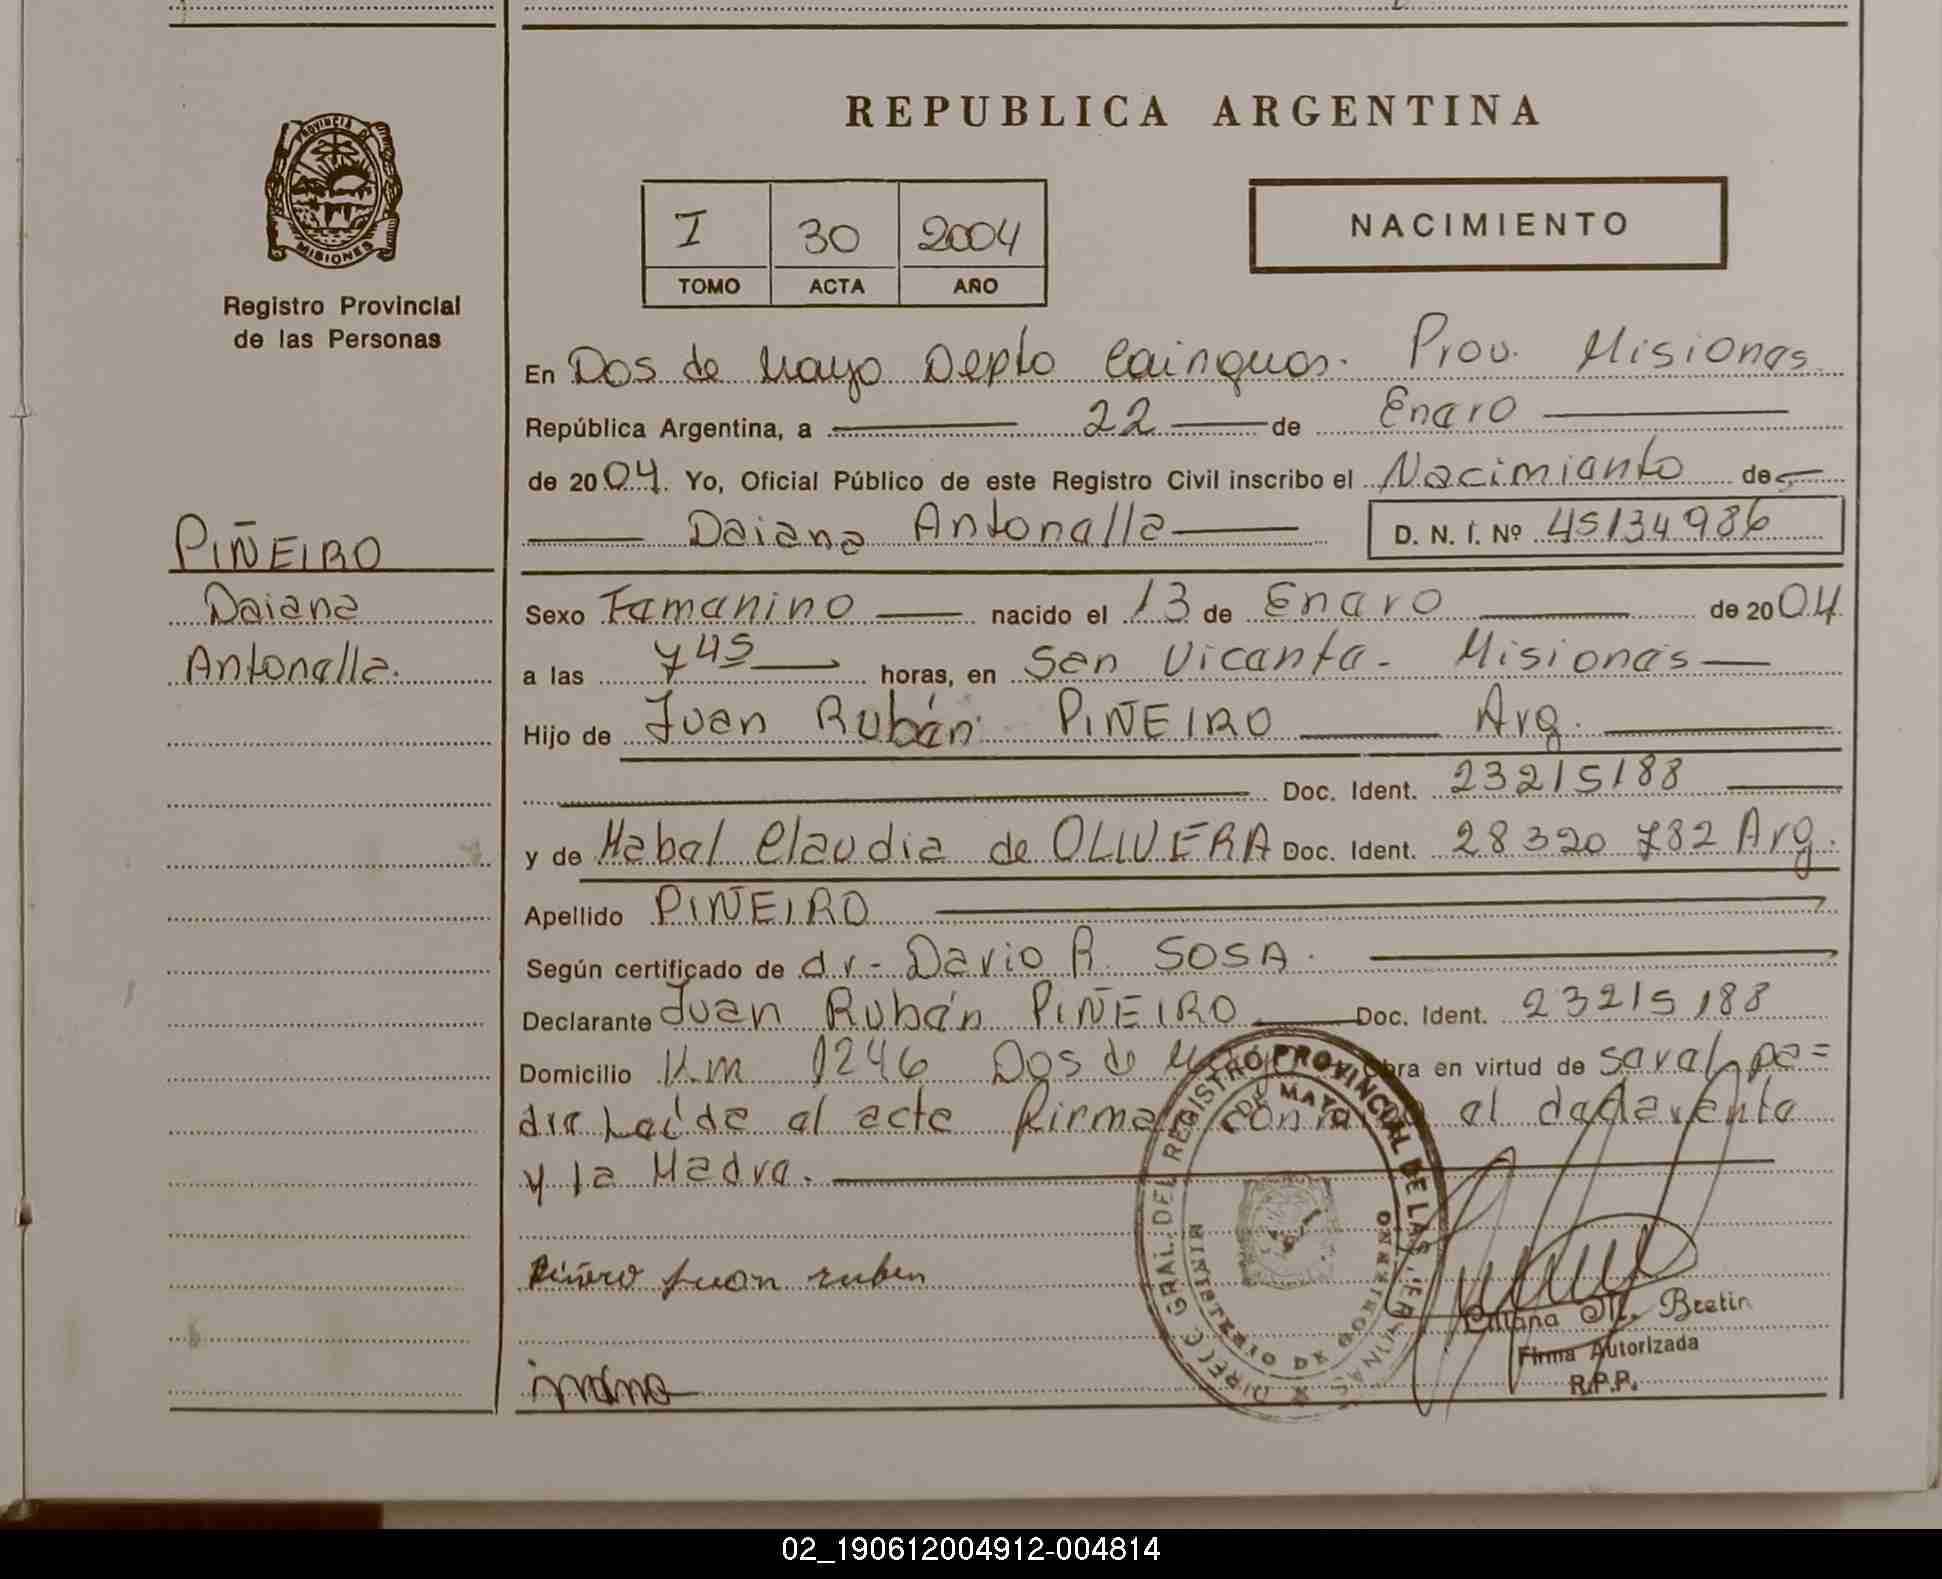 REPUBLICA ARGENTINA
PROVINCIA DE MISIONES
Registro Provincial
de las Personas
I 30 2004
TOMO ACTA AÑO
NACIMIENTO
En Dos de Mayo Depto Cainguas. Prov. Misiones
República Argentina, a 22 de Enero
de 2004. Yo, Oficial Público de este Registro Civil inscribo el Nacimiento de
Daiana Antonella D. N. I. Nº 45134986
PIÑEIRO
Daiana
Antonella.
Sexo Femenino nacido el 13 de Enero de 2004
a las 745 horas, en San Vicente - Misiones
Hijo de Juan Rubén PIÑEIRO Arg.
Doc. Ident. 23215188
y de Mabel Claudia de OLIVERA Doc. Ident. 28320782 Arg.
Apellido PIÑEIRO
Según certificado de dr - Dario R. SOSA.
Declarante Juan Rubén PIÑEIRO Doc. Ident. 23215188
Domicilio Km 1246 Dos de Obra en virtud de ser el pa=
dre Leída el acta firman al declarente
y la Madre.
Piñero Juan ruben
DIRECC. GRAL. DEL REGISTRO PROVINCIAL DE LAS
2 DE MAYO
MINISTERIO DE GOBIERNO
Liliana M. Bretin
Firma Autorizada
R.P.P.
02_190612004912-004814